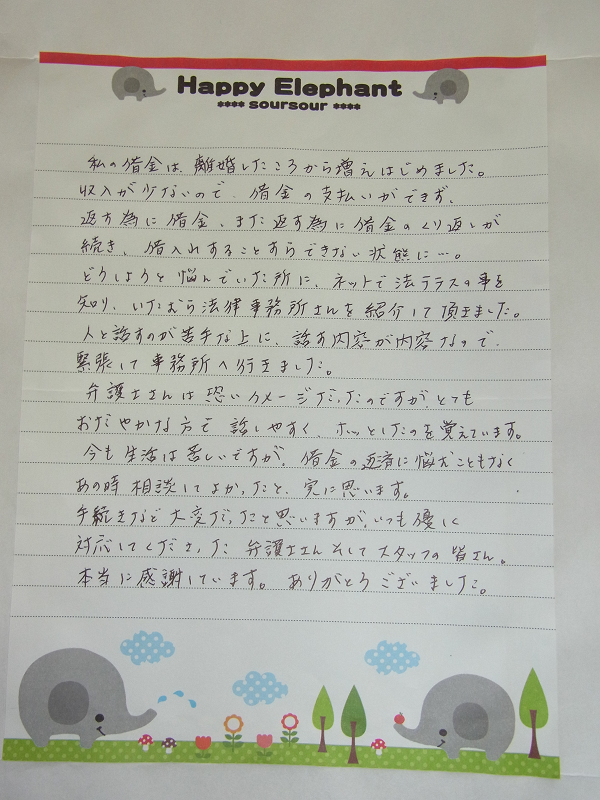 Happy Elephant
**** soursour ****
私の借金は、離婚したころから増えはじめました。
収入が少ないので、借金の支払いができず、
返す為に借金、また返す為に借金のくり返しが
続き、借入れすることすらできない状態に…。
どうしようと悩んでいた所に、ネットで法テラスの事を
知り、いたむら法律事務所さんを紹介して頂きました。
人と話すのが苦手な上に、話す内容が内容なので、
緊張して事務所へ行きました。
弁護士さんは恐いイメージだったのですが、とても
おだやかな方で話しやすく、ホッとしたのを覚えています。
今も生活は苦しいですが、借金の返済に悩むこともなく
あの時相談してよかったと、実に思います。
手続きなど大変だったと思いますが、いつも優しく
対応してくださった弁護士さんそしてスタッフの皆さん。
本当に感謝しています。ありがとうございました。